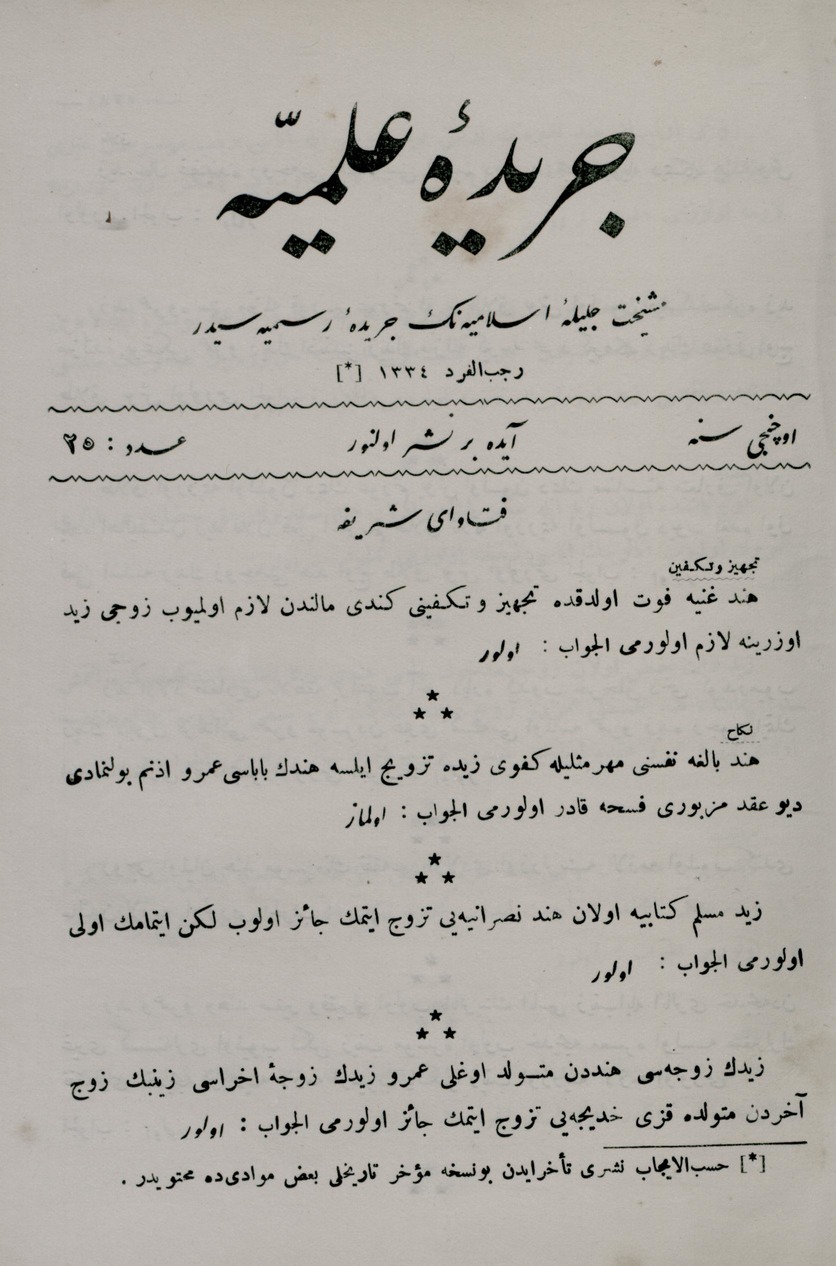 جريدهٔ علميّه
مشيخت جليلهٔ اسلاميه‌نك جريدهٔ رسميه سيدر
رجب الفرد ١٣٣٤ [*]
اوچنجى سنه
آيده بر نشر اولنور
عدد : ٢٥
فتاواى شريفه
تجهيز وتكفين
هند غنيه فوت اولدقده تجهيز و تكفينى كندى مالندن لازم اولميوب زوجى زيد
اوزرينه لازم اولورمى الجواب : اولور
نكاح
هند بالغه نفسنى مهر مثليله كفوى زيده تزويج ايلسه هندك باباسى عمرو اذنم بولنمادى
ديو عقد مزبورى فسخه قادر اولورمى الجواب : اولماز
زيد مسلم كتابيه اولان هند نصرانيه‌يى تزوج ايتمك جائز اولوب لكن ايتمامك اولى
اولورمى الجواب : اولور
زيدك زوجه‌سى هنددن متولد اوغلى عمرو زيدك زوجهٔ اخراسى زينبك زوج
آخردن متولده قزى خديجه‌يى تزوج ايتمك جائز اولورمى الجواب : اولور
[*] حسب الايجاب نشرى تأخر ايدن بونسخه مؤخر تاريخلى بعض موادى‌ده محتويدر .